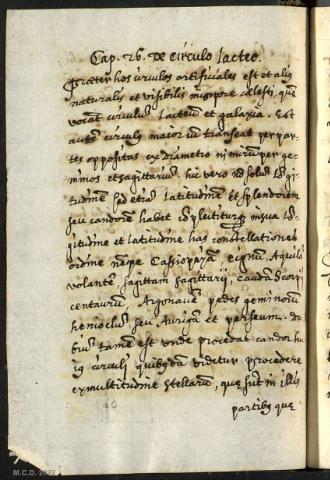 Cap. 26. De circulo lacteo.
Praeter hos circulos artificiales est et aliq
naturalis et visibilis in corpore celesti, quē
vocāt circulū Lacteum et galaxia. Est
autē circulq maior nā transeat per par-
tes oppositas ex Diametro nimirum per ge-
minos et sagittarium. hic vero nō solum lōgi
tudinem sed etiā latitudinem et splendorem
seu candorem habet in sua lō-
gitudine et latitudine has constellationes
ordine nēpe Cassiopayā cignum, Aquilā
volantē sagittam sagittarij, caudā Scorpi
centaurum, Argonavē, pedes geminorū
henioclum seu Aurigam et perseum. du
biuʒ tamē est unde procedat candor hu
iq circuli, quibqdā videtur procedere
ex multitudine stellarum, que sūt in illis
partibq que
M.C.D. 2022